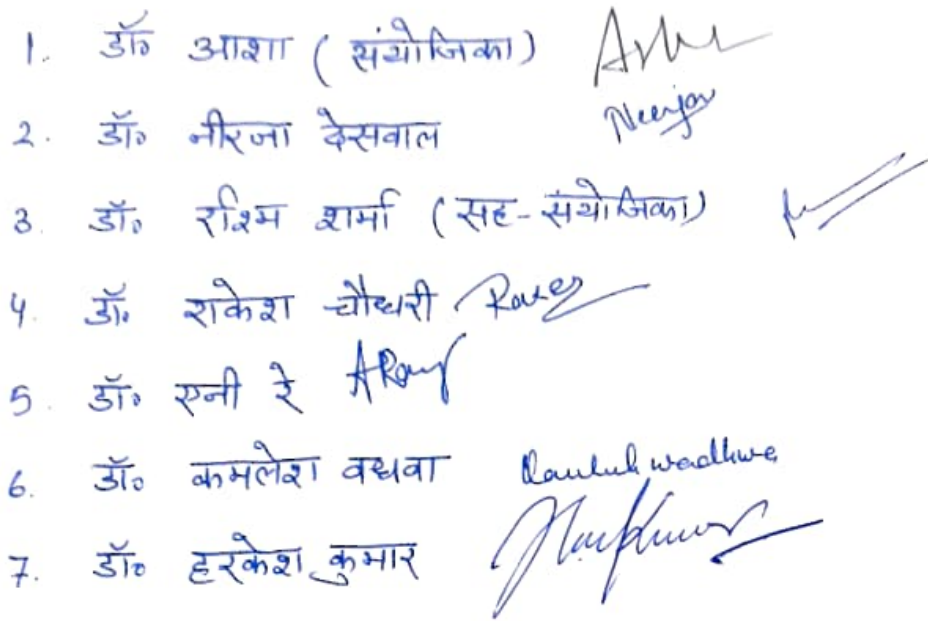 1. डॉ० आशा (संयोजिका)
Neerja
2. डॉ० नीरजा देसवाल
3. डॉ० रश्मि शर्मा (सह-संयोजिका)
4. डॉ० राकेश चौधरी
5. डॉ० एनी रे ARay
6. डॉ० कमलेश वधवा Kamlesh wadhwa
7. डॉ० हरकेश कुमार